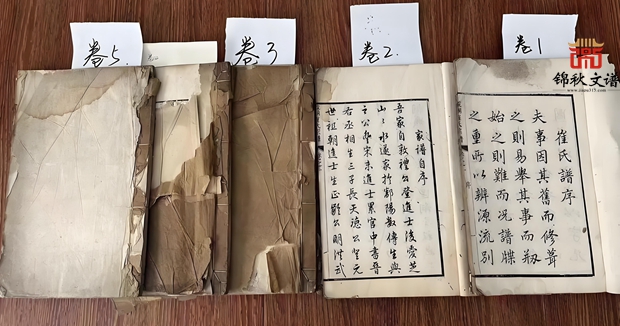 卷5
卷3
卷2.
卷1
锦秋文谱
崔氏譜序
夫事因其舊而修葺
之則易舉其事而剏
始之則難而況譜牒
之重所以辨源流别
家譜自序
吾家自敦禮公登進士後愛芝
山之水遂家於鄱陽數傳生與
之公登宋朱進士累官中書晉
右丞相生三子長天德公登元
世祖朝進士生正顯公明洪武